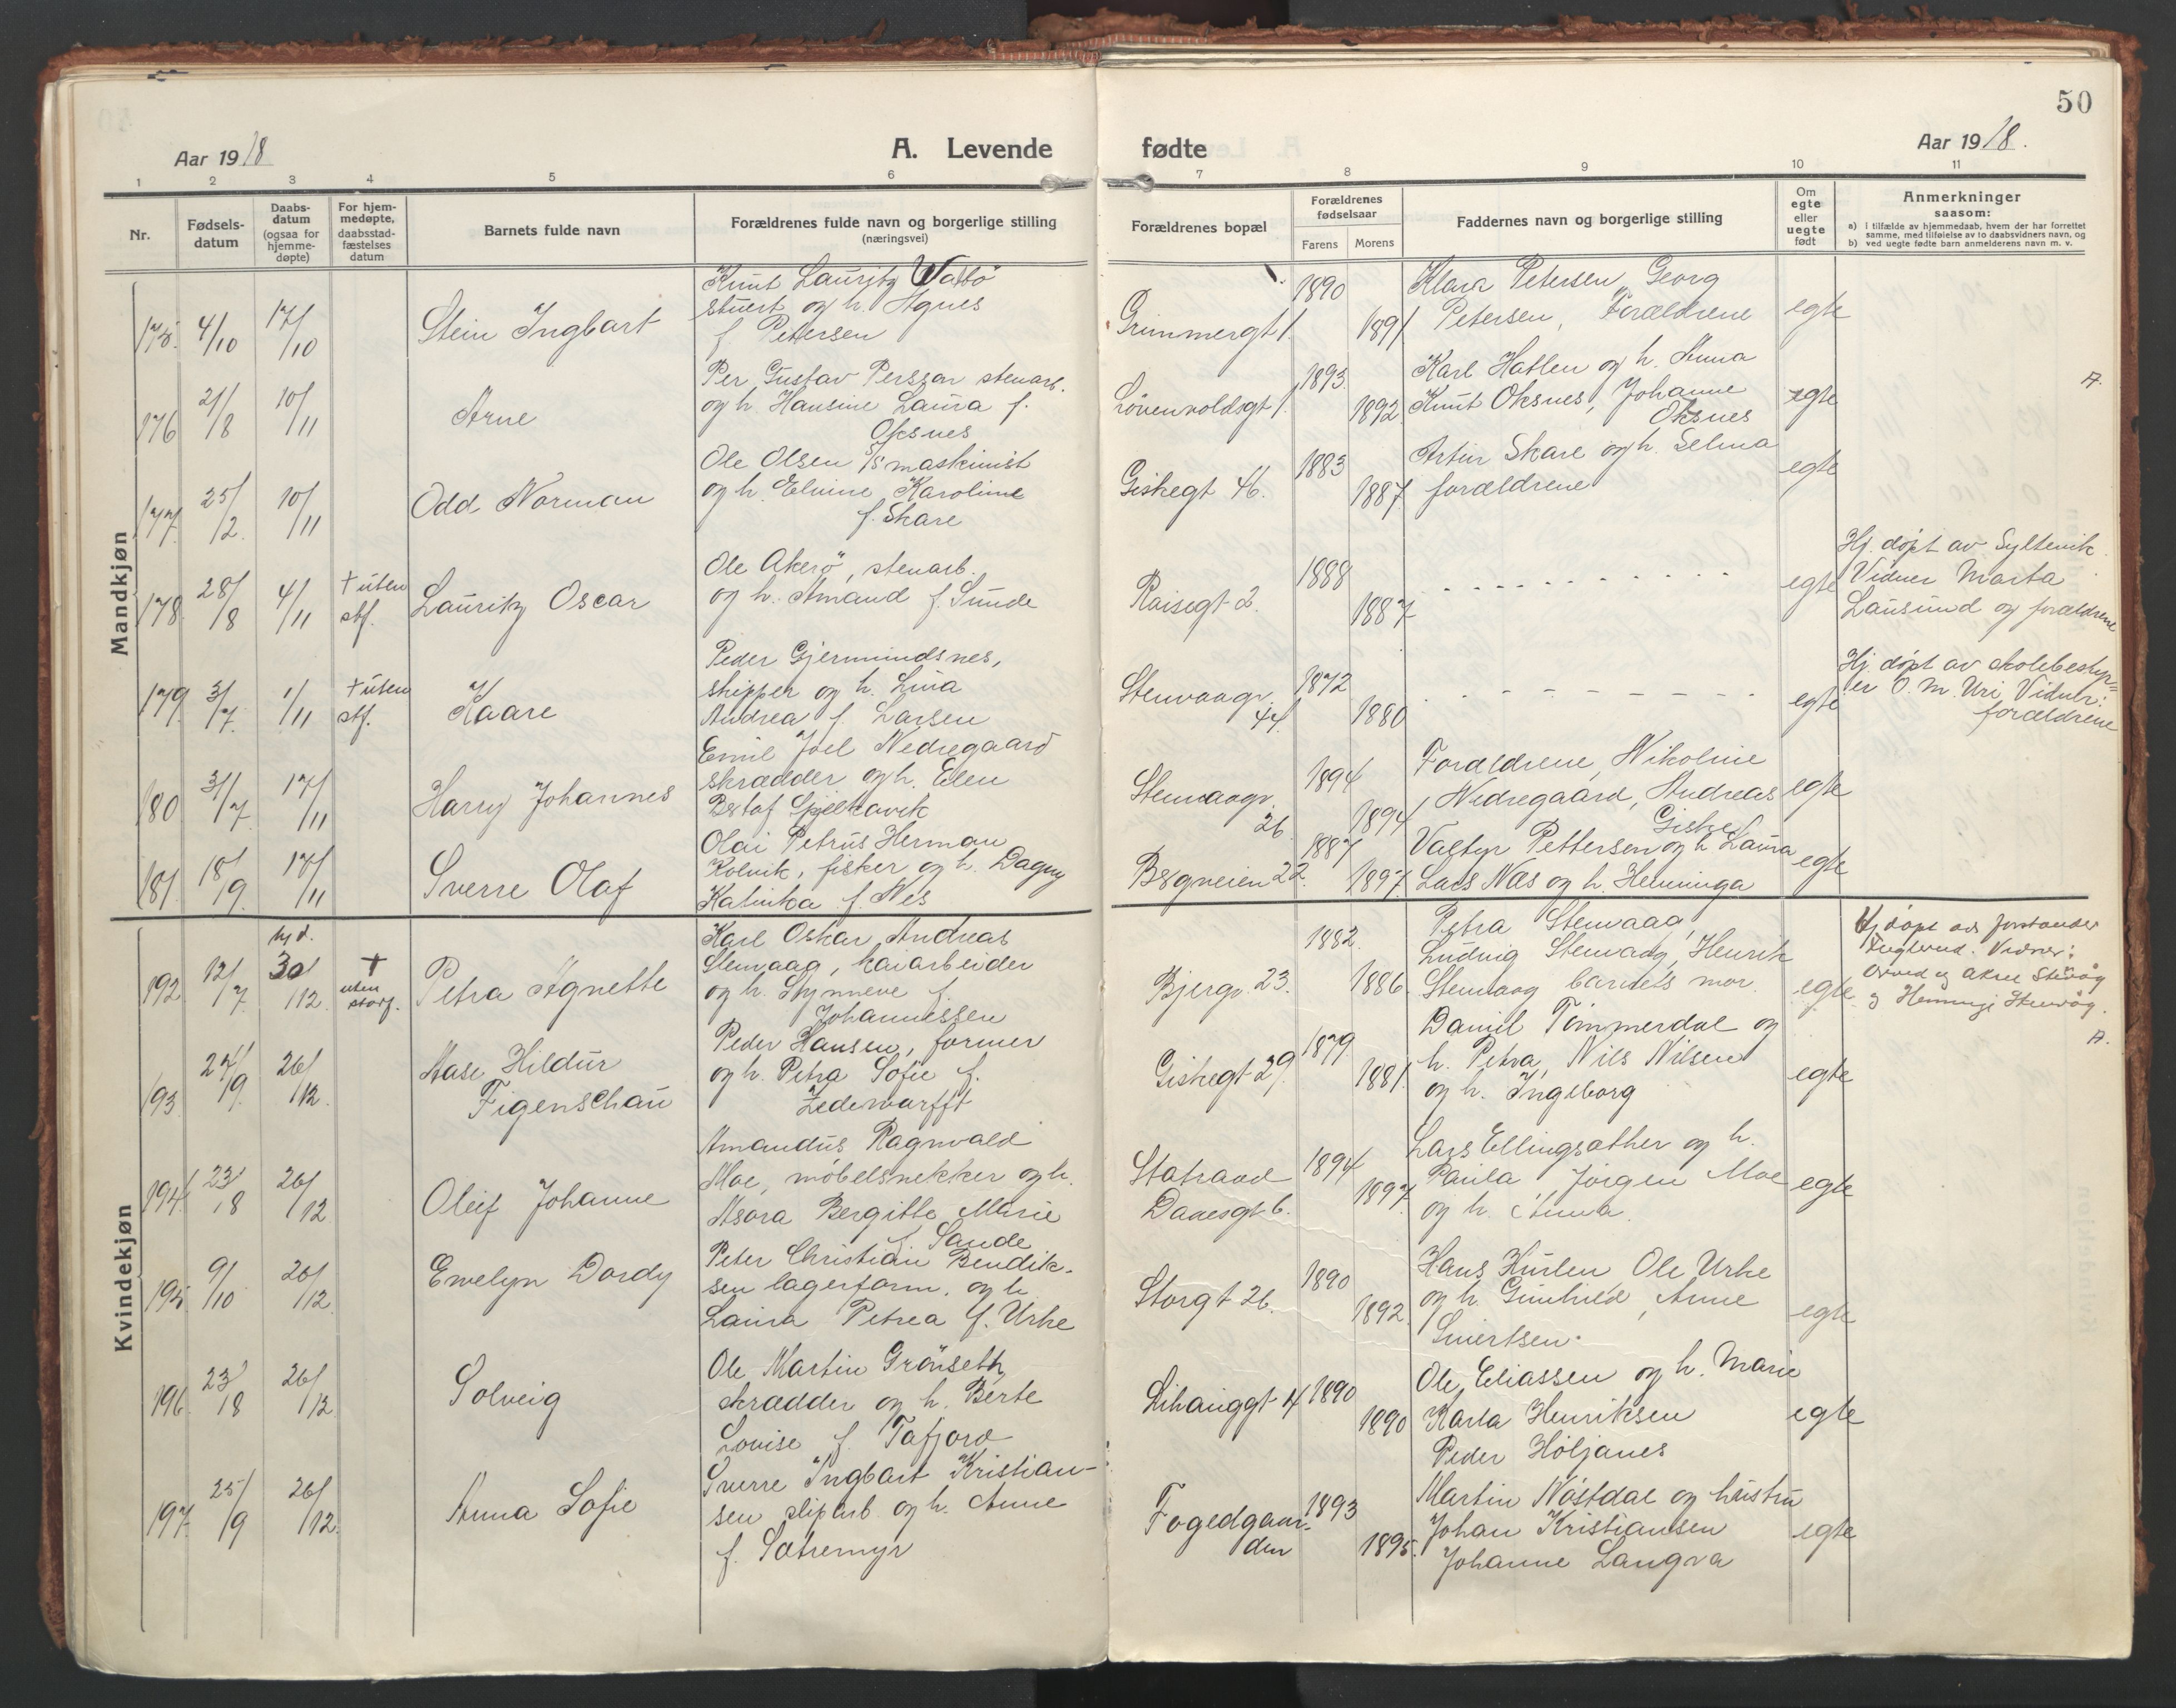 50
Aar 1918
A. Levende
fødte
Aar 1918.
1 2 3 4 5 6 7 8 9 10 11
Nr.
Fødsels-
datum
Daabs-
datum
(ogsaa for
hjemme-
døpte)
For hjem-
medøpte,
daabsstad-
fæstelses
datum
Barnets fulde navn
Forældrenes fulde navn og borgerlige stilling
(næringsvei)
Forældrenes bopæl
Forældrenes
fødselsaar
Farens Morens
Faddernes navn og borgerlige stilling
Om
egte
eller
uegte
født
Anmerkninger
saasom:
a) i tilfælde av hjemmedaab, hvem der har forrettet
samme, med tilføielse av to daabsvidners navn, og
b) ved uegte fødte barn anmelderens navn m. v.
Mandkjøn
175. 4/10 17/10 Stein Ingbart
Knut Lauritz Watsö
stuert og h. Agnes
f. Petersen
Grimmergt 1. 1890 1891
Klara Petersen, Georg
Petersen, Forældrene
egte
176 21/8 10/11 Arne
Per Gustav Persson stenarb.
og h. Hansine Laura f.
Oksnes
Lövenvoldsgt 1. 1893. 1892
Karl Hatlen og h. Anna
Knut Oksnes, Johanne
Oksnes
egte
A.
177. 25/2. 10/11 Odd Norman
Ole Olsen D/S maskinist
og h. Elvine Karoline
f. Skare
Giskegt 46. 1883 1887.
Artur Skare og h. Selma
forældrene
egte
178. 28/8 4/11 † uten stf. Lauritz Oscar
Ole Akerö, stenarb.
og h. Amand f. Sunde
Raisegt 2. 1888 1887
egte
Hj. döpt av Syltevik.
Vidner Marta
Lausund og forældrene
179. 3/7. 1/11 † uten stf. Kaare
Peder Gjermundsnes,
skipper og h. Lina
Andrea f. Larsen
Stenvaagv. 44. 1872 1880
egte
Hj. döpt av skolebesty-
er O. M. Uri Vidner:
forældrene
180 31/7. 17/11 Harry Johannes
Emil Joel Nedregaard
skrædder og h. Elen
Bstof Spjelkavik
Stenvaagv. 26. 1894 1894
Forældrene, Nikoline
Nedregaard, Andreas
Giske
egte
181. 18/9. 17/11 Sverre Olaf
Olai Petrus Herman
Kolvik, fisker og h. Dagny
Katinka f. Nes
Bergveien 22. 1887 1897
Valtyr Pettersen og h Laura
Lars Næs og h. Henninga
egte
Kvindekjøn
192 12/7. hj d. 30/12. † uten storf. Petra Agnette
Karl Oskar Andreas
Stenvaag, kaiarbeider
og h. Synneve f.
Johannessen
Bjergv. 23. 1882. 1886.
Petra Stenvaag,
Ludvig Stenvaag, Henrik
Stenvaag barnets mor.
egte
Hj döpt av forstander
Fuglerud. Vidner:
og Henninge Stenvåg.
193. 27/9. 26/12. Aase Hildur
Figenschau
Peder Hansen, former
og h. Petra Sofie f.
Zedewarfft
Giskegt 29. 1879. 1881.
Daniel Tömmerdal og
h. Petra, Nils Nilsen
og h. Ingeborg
egte
A.
194. 23/8 26/12 Oleif Johanne
Amandus Ragnvald
Moe, möbelsnekker og h.
Asora Bergitte Marie
f. Sande
Statsraad
Daaesgt 6. 1894 1897.
Lars Ellingsæther og h.
Paula Jörgen Moe
og h. Anna.
egte
195 9/10 26/12. Ewelyn Dordy
Peter Christian Bendik-
sen lagerform. og h.
Laura Petrea f. Urke
Storgt 26. 1890 1892.
Hans Hurlen Ole Urke
og h. Gunhild, Anne
Sivertsen.
egte
196. 23/8 26/12. Solveig
Ole Martin Grönseth
skrædder og h. Berte
Lovise f. Tafjord
Lihauggt 4 1890 1890
Ole Eliassen og h. Marie
Karla Henriksen
Peder Höljanes
egte
197. 25/9 26/12. Anna Sofie
Sverre Ingbart Kristian-
sen sliparb. og h. Anne
f. Sætremyr
Fogedgaar-
den 1893 1895.
Martin Nöstdal og hustru
Johan Kristiansen
Johanne Langva
egte